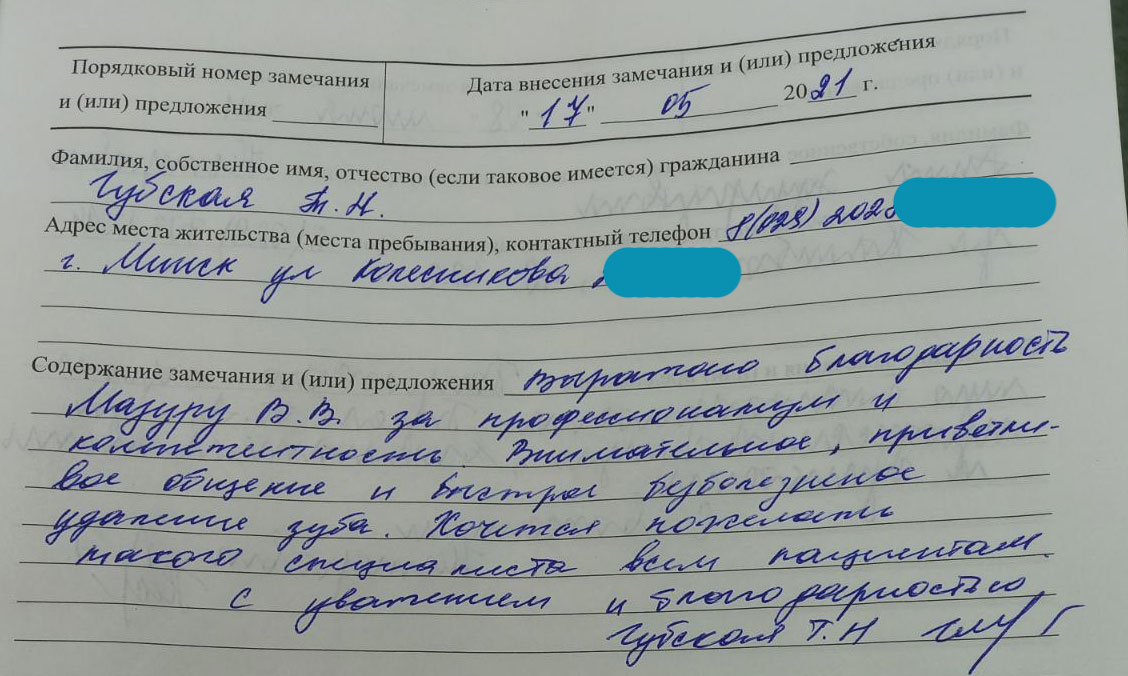 Порядковый номер замечания
и (или) предложения
Дата внесения замечания и (или) предложения
" 17 " 05 2021 г.
Фамилия, собственное имя, отчество (если таковое имеется) гражданина
Губская Т.Н.
Адрес места жительства (места пребывания), контактный телефон 8(029) 202
г. Минск ул Колесникова
Содержание замечания и (или) предложения Выражаю благодарность
Мазуру В.В. за профессионализм и
компетентность. Внимательное, приветли-
вое общение и быстрое безболезненное
удаление зуба. Хочется пожелать
такого специалиста всем пациентам.
С уважением и благодарностью
Губская Т.Н